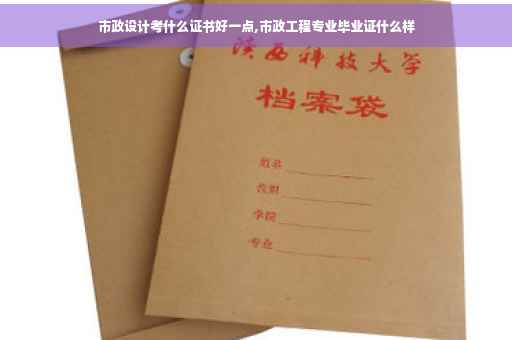 市政设计考什么证书好一点,市政工程专业毕业证什么样
陕西科技大学
档案袋
学院
专业